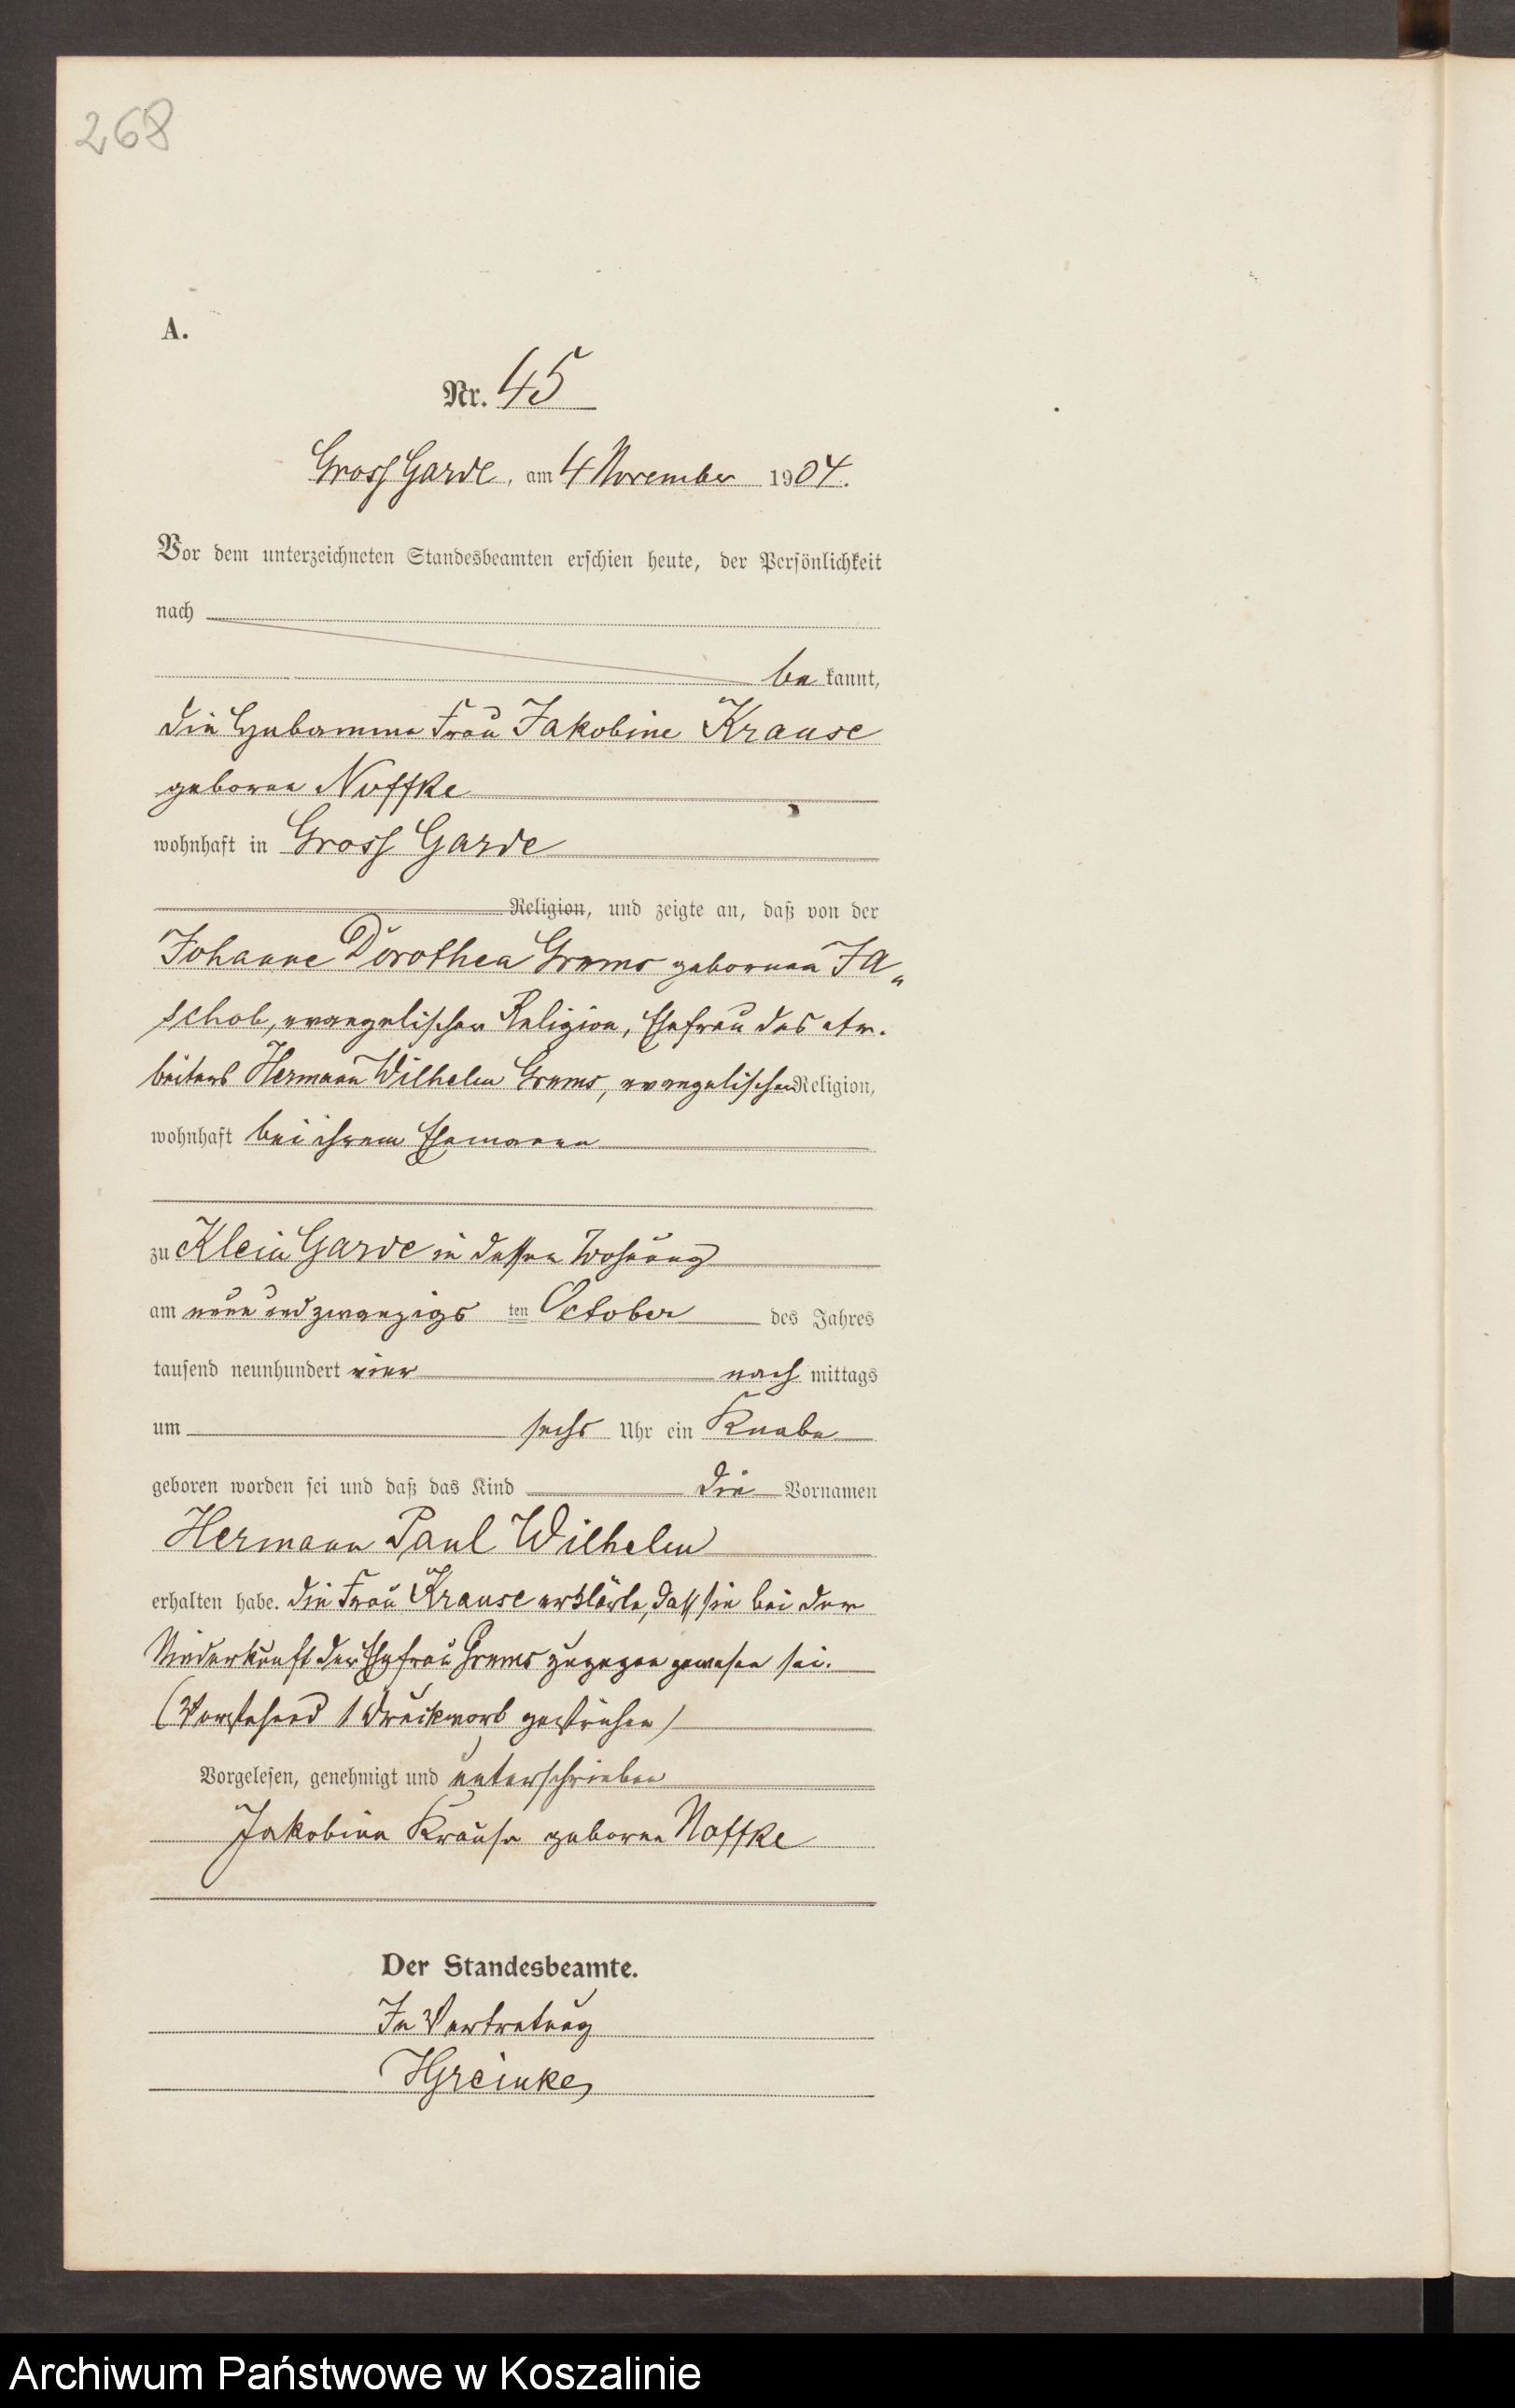 268
A.
Nr. 45
Gross Garde, am 4 November 1904.
Vor dem unterzeichneten Standesbeamten erschien heute, der Persönlichkeit
nach
be kannt,
die Hebamme Frau Jakobine Krause
geborne Noffke
wohnhaft in Gross Garde
Religion, und zeigte an, daß von der
Johanne Dorothea Grems gebornen Ja„
schob, evangelischer Religion, Ehefrau des Ar-
beiters Hermann Wilhelm Grems, evangelischer Religion,
wohnhaft bei ihrem Ehemanne
zu Klein Garde in dessen Wohnung
am neun und zwanzigs ten October des Jahres
tausend neunhundert vier nach mittags
um sechs Uhr ein Knabe
geboren worden sei und daß das Kind die Vornamen
Hermann Paul Wilhelm
erhalten habe. Die Frau Krause erklärte, daß sie bei der
Niederkunft der Ehefrau Grems zugegen gewesen sei.
(Vorstehend 1 Druckwort gestrichen)
Vorgelesen, genehmigt und unterschrieben
Jakobine Krause geborne Noffke
Der Standesbeamte.
In Vertretung
HGreinke
Archiwum Państwowe w Koszalinie